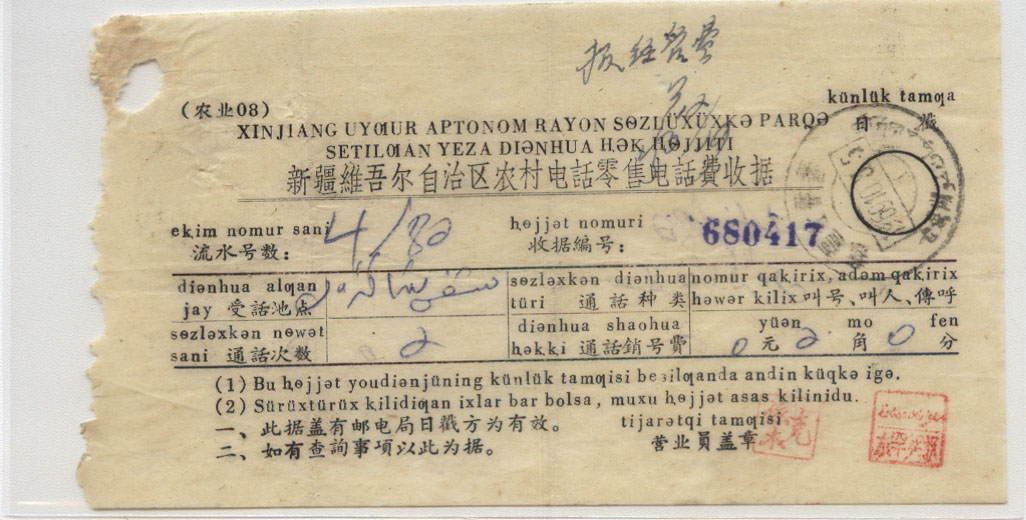 报经营费
(农业08)
künlük tamƣa
日 戳
XINJIANG UYƢUR APTONOM RAYON SɵZLÜXÜXKƏ PARQƏ
SETILƢAN YEZA DIƏNHUA HƏK HɵJJITI
新疆維吾尔自治区农村电話零售电話費收据
eⱪim nomur sani
流水号数：
4/82
ⱨɵjjət nomuri
收据編号：
680417
diənhua alƣan
jay 受話地点
sɵzləxkən diənhua
türi 通話种类
nomur qakirix, adəm qakirix
həwər kilix 叫号、叫人、傳呼
sɵzləxkən nɵwət
sani 通話次数
2
diənhua shaohua
ⱨəkki 通話銷号費
yüən mo fen
0元2角0分
(1) Bu ⱨɵjjət youdiənjüning künlük tamƣisi besilƣanda andin küqkə igə.
(2) Sürüxtürüx kilidiƣan ixlar bar bolsa, muxu ⱨɵjjət asas kilinidu.
一、此据盖有邮电局日戳方为有效。
二、如有查詢事項以此为据。
tijarətqi tamƣisi
营业員盖章